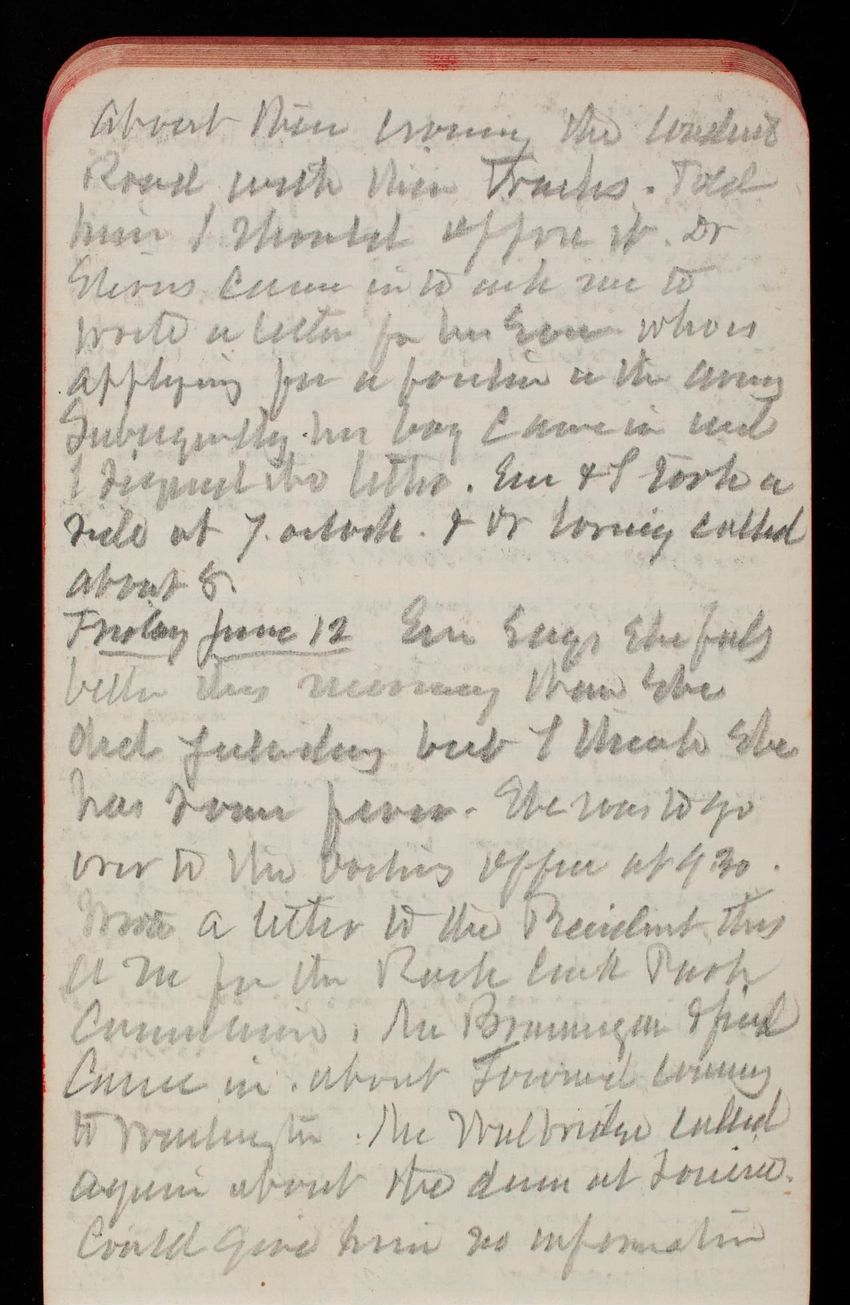 about their crossing the Conduit
Road with their Tracks. Told
him I should oppose it. Dr
came in to ask me to
write a letter for his Son who is
applying for a position in the army
Subsequently his boy came in and
I signed the letter. Em & I took a
ride at 7. oclock. & Dr Loring called
about 8.
Friday June 12 Em Says She feels
better this morning than She
did yesterday but I think She
has Some fever. She was to go
over to the doctors office at 930.
Wrote a letter to the President this
A M for the Rock Creek Park
Commission. Mr &
Came in. about coming
to Washington. Mr Walbridge called
again about the dam at
Could give him no information